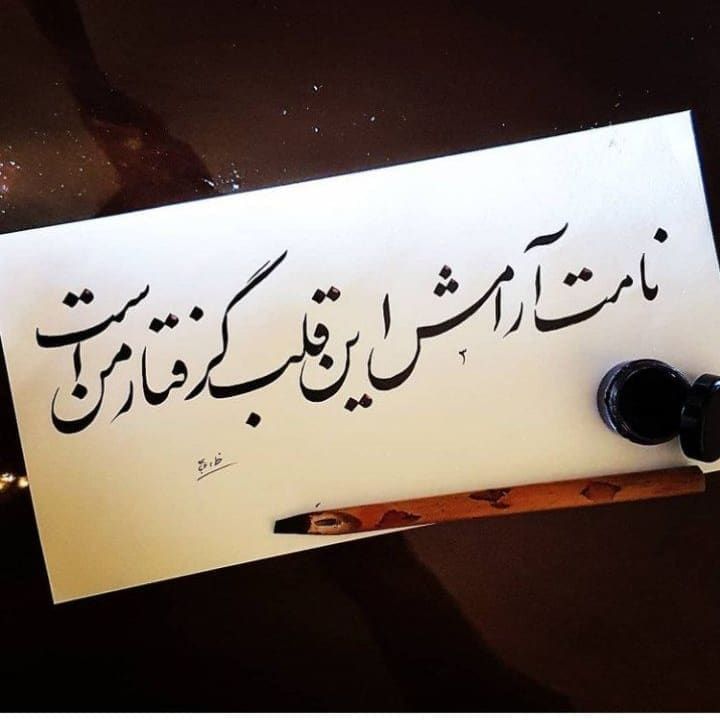 نامت آرامش این قلب گرفتار من است